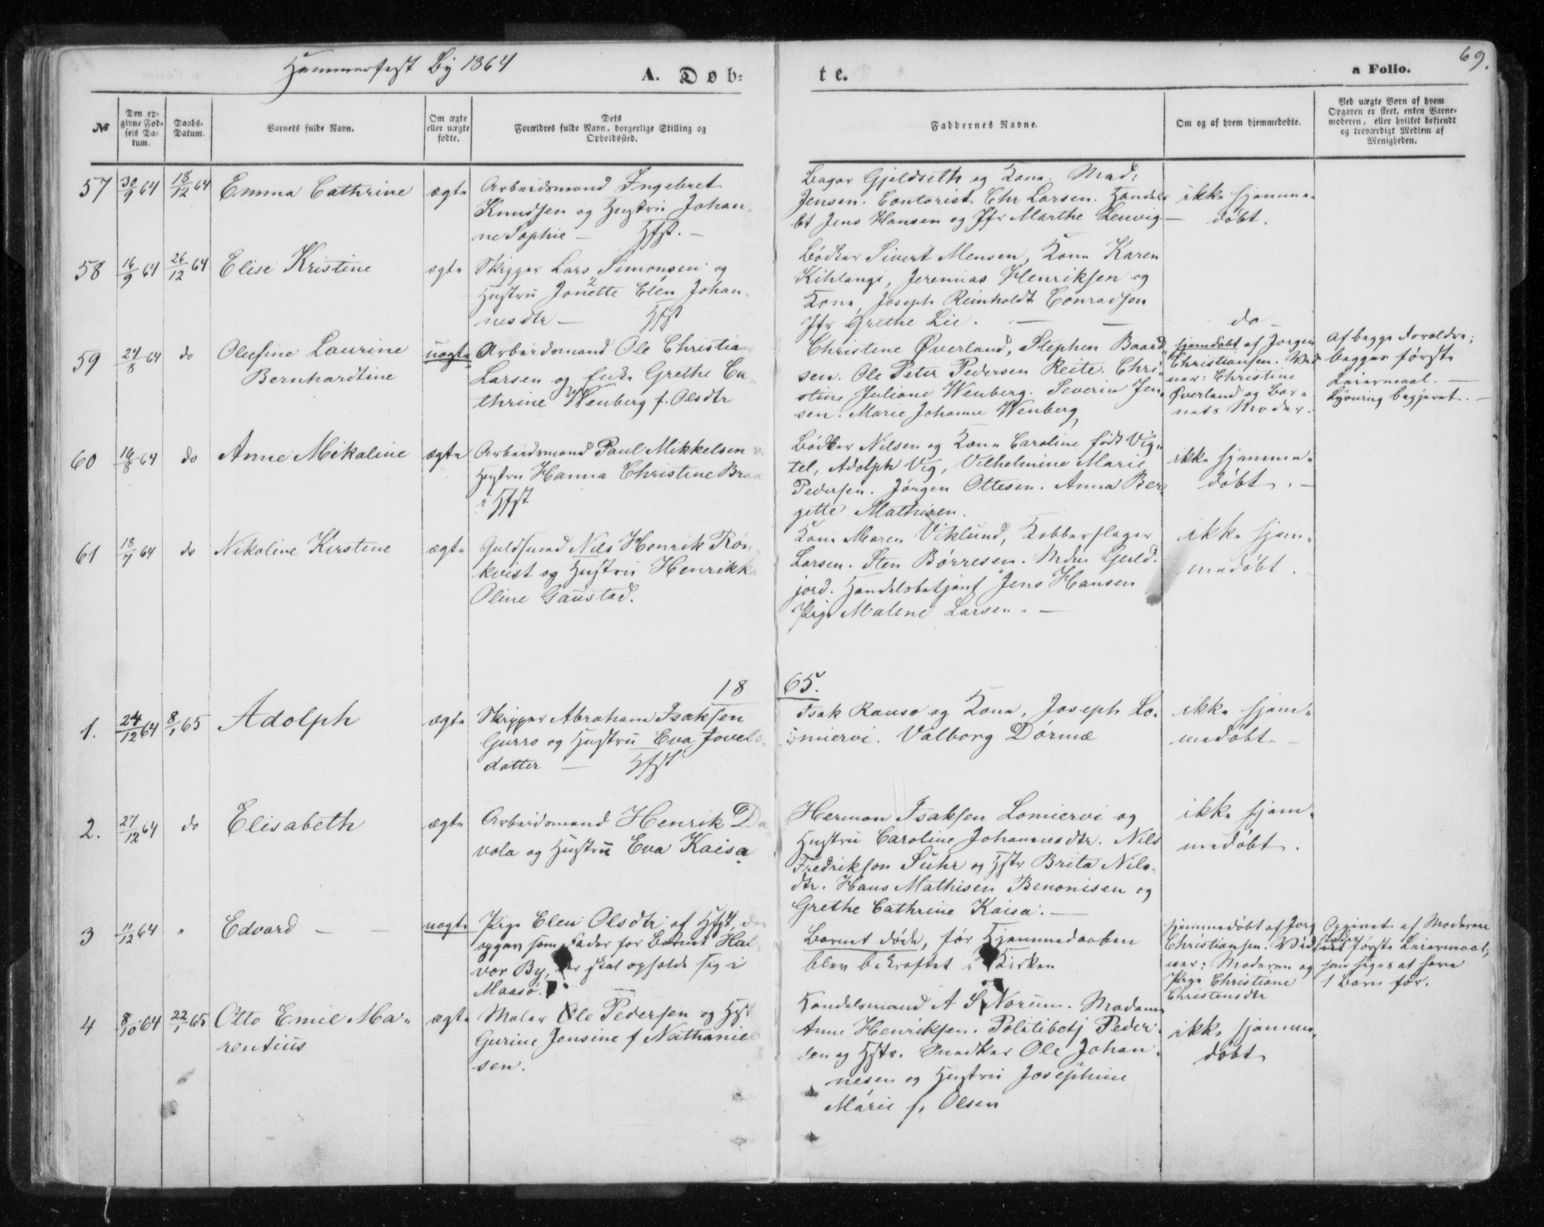 Hammerfest By 1864
A. Døb-
te.
a Folio.
69.
№
Den op-
givne Fød-
sels Da-
tum.
Daabs-
Datum.
Barnets fulde Navn.
Om ægte
eller uægte
fødte.
Dets
Forældres fulde Navn, borgerlige Stilling og
Opholdssted.
Faddernes Navne.
Om og af hvem hjemmedøbte.
Ved uægte Børn af hvem
Opgaven er skeet, enten Barne-
moderen, eller hvilket bekjendt
og troværdigt Medlem af
Menigheden.
57 30/9 64 18/12 64 Emma Cathrine ægte
Arbeidsmand Ingebret
Knudsen og Hustru Johan-
ne Sophie — Hfst. —
Bager Gjeldseth og Kone. Mad:
Jensen. Contorist Chr Larsen. Handels
bt Jens Hansen og Jfr Marthe Lenvig —
ikke hjemme-
døbt.
58 16/9 64 26/12 64 Elise Kristine ægte
Skipper Lars Simonsen og
Hustru Jonette Elen Johan-
nesdtr — Hfst
Bødker Sivert Mensen, Kone Karen
Kihlangi, Jeremias Henriksen og
Kone, Joseph Reinholdt Conradsen
Jfr Grethe Lie. — —
do
59 24/8 64 do Olufine Laurine
Bernhardtine
uægte
Arbeidsmand Ole Christia
Larsen og Enke Grethe Ca-
thrine Wenberg f. Olsdtr
Christine Øverland, Stephen Baard
sen. Ole Peter Pedersen Reite. Chri-
stine Juliane Wenberg. Severin Jen
sen. Marie Johanne Wenberg,
hjemdøbt af Jørgen
Christiansen. Vid
ner: Christine
Øverland og Bar-
nets Moder.
Af begge Forældre;
begges første
Leiermaal. —
begjæret. —
60 16/8 64 do Anne Mikaline ægte
Arbeidsmand Paul Mikkelsen
Hustru Hanna Christine
i Hfst
Bødker Nilsen og Kone Caroline født Vig-
tel, Adolph Vig, Vilhelmine Marie
Pedersen. Jørgen Ottesen. Anna Ber
gette Mathisen.
ikke hjemme-
døbt. —
61 18/7 64 do Nikoline Kirstine ægte
Guldsmed Nils Henrik Røn-
kvist og Hustru Henrikke
Oline Gaustad.
Kone Maren Viklund, Kobberslager
Larsen. Sten Børresen. Mdm Guld-
jord. Handelsbetjent Jens Hansen
Pige Malene Larsen. —
ikke hjem-
medøbt.
18
65.
1. 24/12 64 8/1 65 Adolph ægte
Skipper Abraham Isaksen
Gurro og Hustru Eva Jovels-
datter — Hfst
Isak Rauso og Kone, Joseph Lo-
miervi. Valborg Dørmæ
ikke hjem-
medøbt. —
2. 27/12 64 do Elisabeth ægte
Arbeidsmand Henrik Da
vola og Hustru Eva Kaisa
Herman Isaksen Lomiervi og
Hustru Caroline Johannesdtr. Nils
Fredriksen Suhr og Hstr Brita Nils-
dtr. Hans Mathisen Benonisen og
Grethe Cathrine Kaisa. —
ikke hjem-
medøbt.
3 11/12 64 " Edvard — — uægte
Pige Elen Olsdtr af Hfst, der
opgav som Fader for Barnet Hal-
vor By, der skal opholde sig i
Maasø.
Barnet døde, før Hjemmedaaben
blev bekræftet i Kirken
hjemmedøbt af Jørg
Christiansen. Vid
ner: Moderen og
Pige Christiane
Christensdtr
Opgivet af Moderen
første Leiermaal,
som siges at have
1 Barn før.
4 8/10 64 22/1 65 Otto Emil Ma-
rentius
ægte
Maler Ole Pedersen og Hst
Gurine Jensine f Nathaniel
sen.
Handelsmand A S Norum. Madame
Anne Henriksen. Politibetj Peder-
sen og Hstr. Ole Johan-
nesen og Hustru Josephine
Marie f. Olsen
ikke hjemme-
døbt